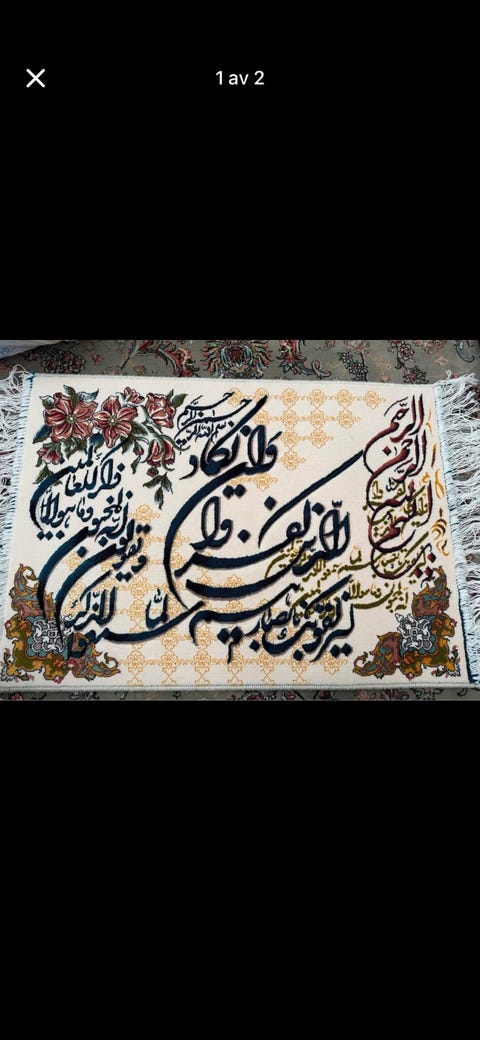 1 av 2
الرحیم
الرحمن
الله
بسم
وان یکاد
الذین کفروا
لیزلقونک بابصارهم
لما سمعوا الذکر
و یقولون
انه لمجنون و ما هو الا
ذکر للعالمین